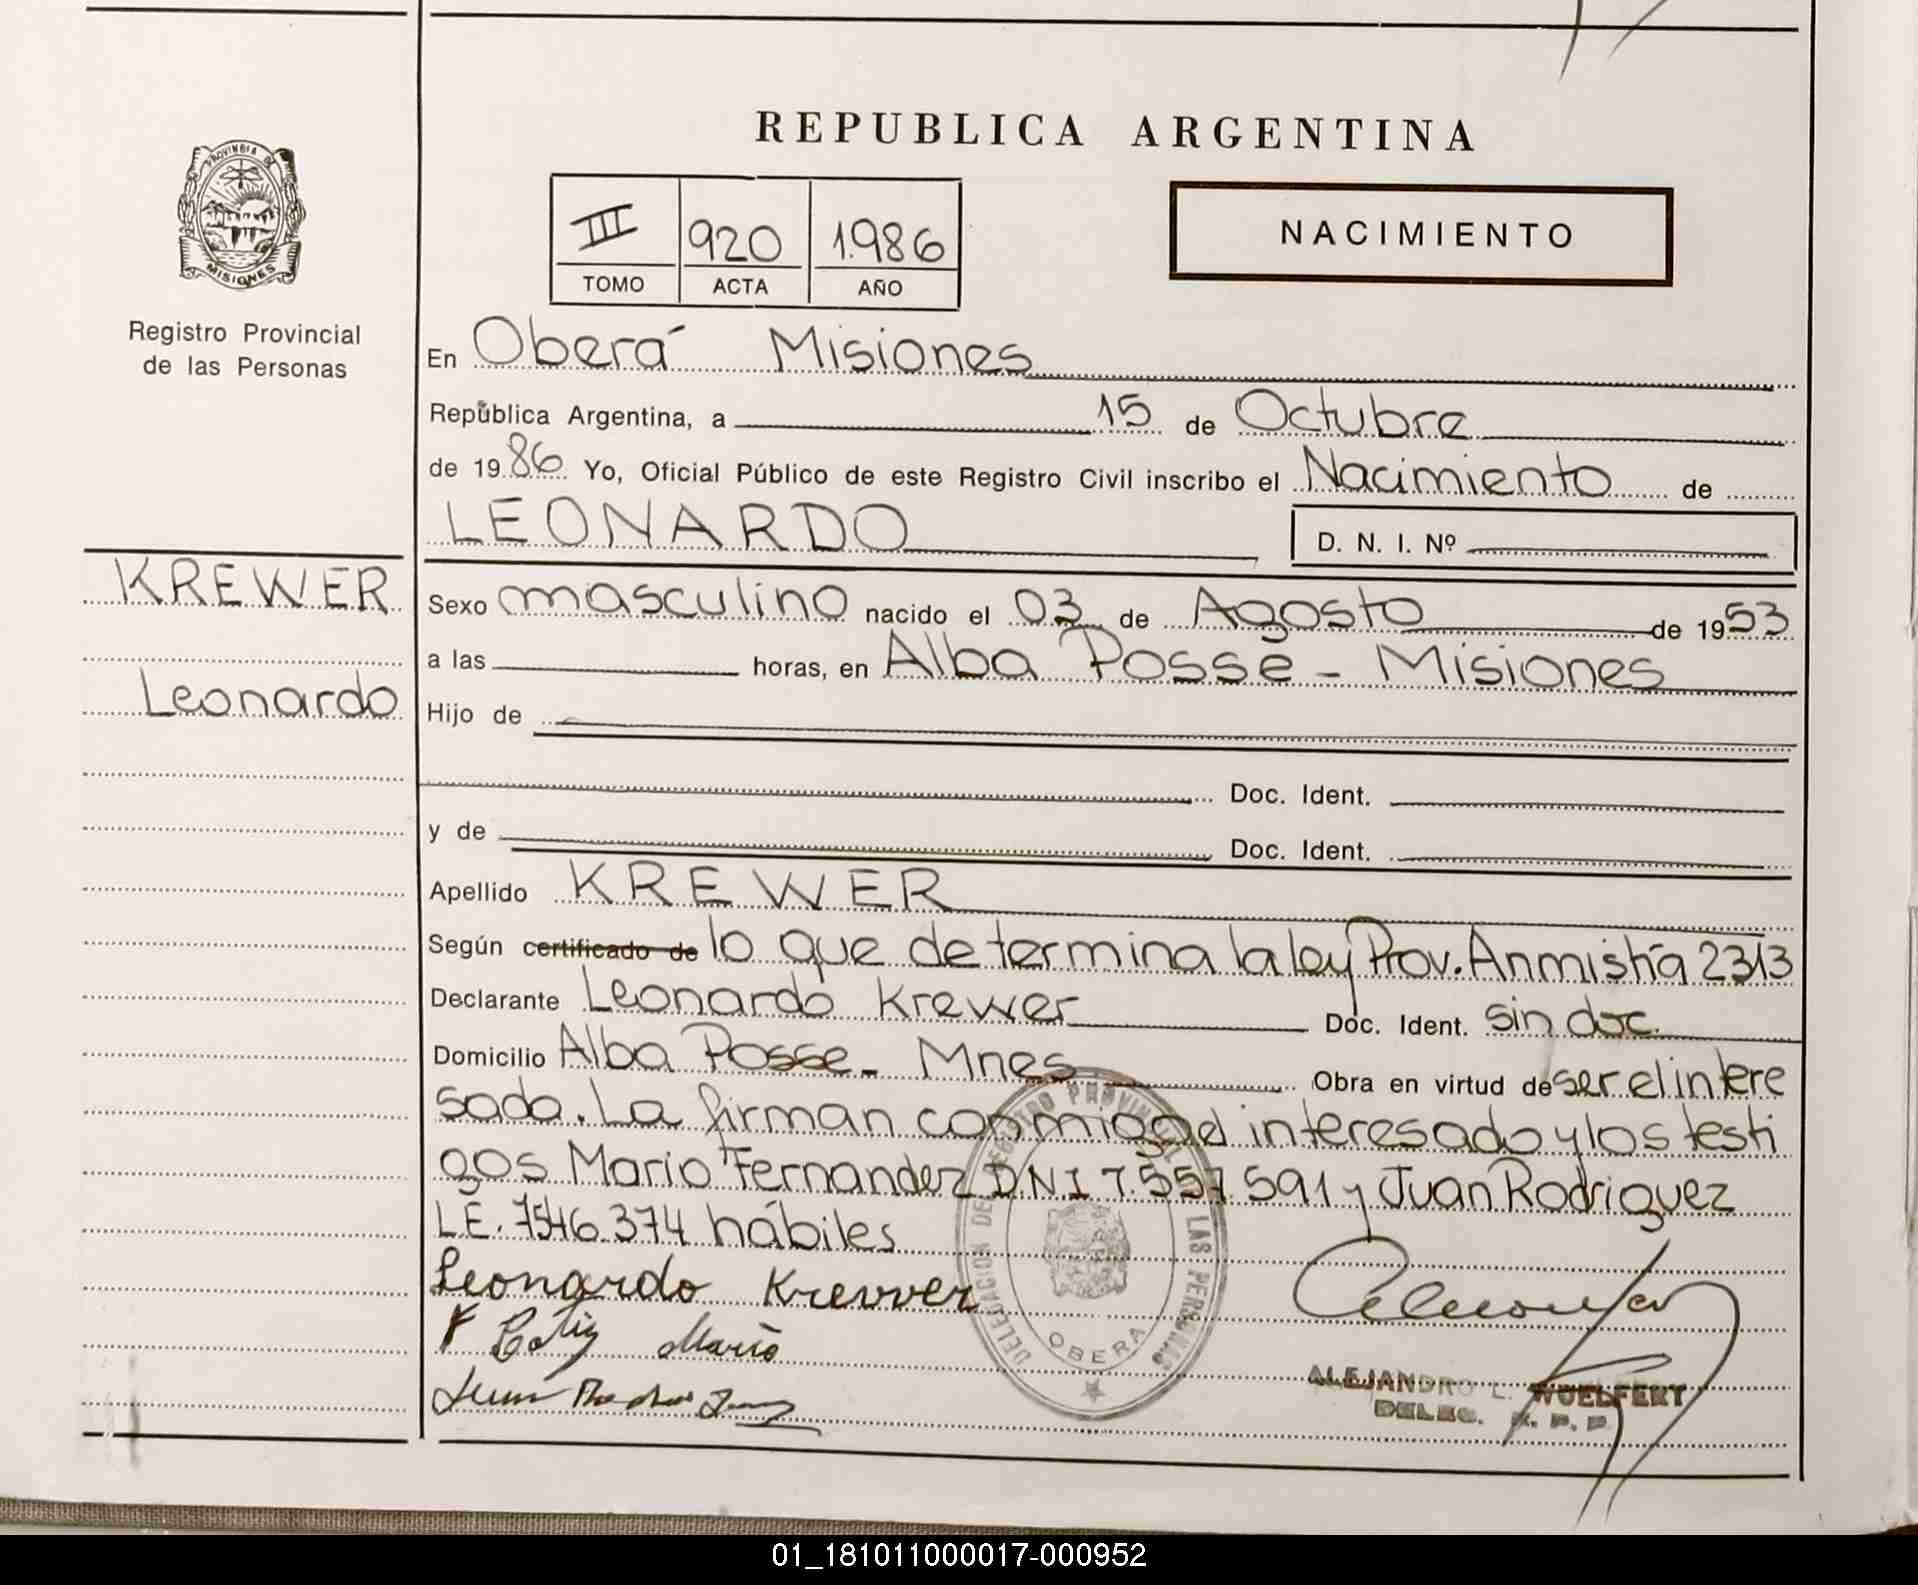 REPUBLICA ARGENTINA
PROVINCIA DE
MISIONES
Registro Provincial
de las Personas
III 920 1.986
TOMO ACTA AÑO
NACIMIENTO
En Oberá Misiones
República Argentina, a 15 de Octubre
de 19 86 Yo, Oficial Público de este Registro Civil inscribo el Nacimiento de
LEONARDO
D. N. I. Nº
KREWER
Leonardo
Sexo masculino nacido el 03 de Agosto de 19 53
a las horas, en Alba Posse - Misiones
Hijo de
Doc. Ident.
y de Doc. Ident.
Apellido KREWER
Según certificado de lo que determina la ley Prov. Anmistía 2313
Declarante Leonardo Krewer Doc. Ident. sin doc.
Domicilio Alba Posse - Mnes Obra en virtud de ser el intere
sado. La firman conmigo el interesado y los testi
gos Mario Fernandez DNI 7.557.591 y Juan Rodriguez
LE. 7546.374 hábiles
Leonardo Krewer
Mario
DELEGACION DEL REGISTRO PROVINCIAL DE LAS PERSONAS
OBERA
ALEJANDRO L. WUELFERT
DELEG. R. P. P.
01_181011000017-000952